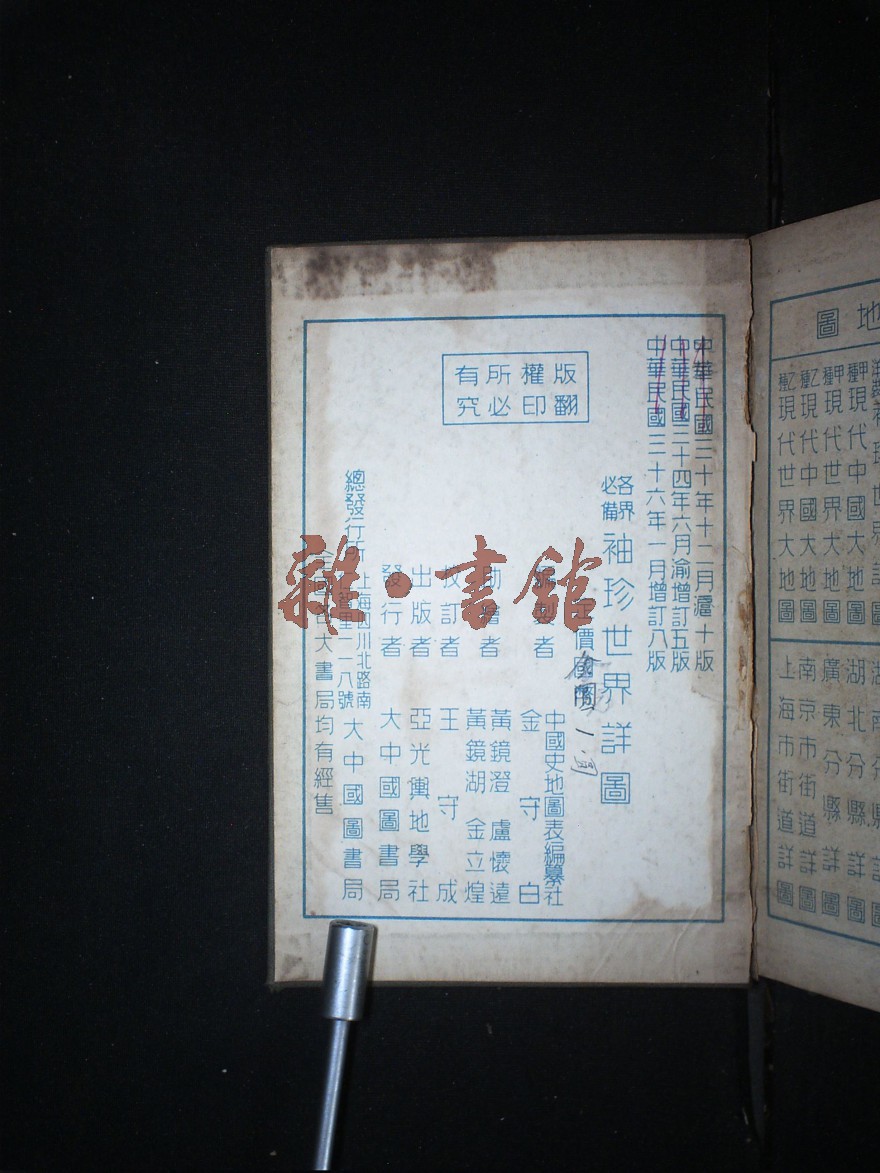 中華民國三十年十二月滬十版
中華民國三十四年六月渝增訂五版
中華民國三十六年一月增訂八版
版權所有
翻印必究
各界必備
袖珍世界詳圖
價
一
者 中國史地圖表編纂社
金守白
者 黃鏡澄 盧懷遠
黃鏡湖 金立煌
校訂者 王守成
出版者 亞光輿地學社
發行者 大中國圖書局
總發行所 上海四川北路南
里一一八號 大中國圖書局
大書局均有經售
雜·書館
地圖
現代中國大地圖
現代世界大地圖
現代中國大地圖
現代世界大地圖
湖北分縣詳圖
廣東分縣詳圖
南京市街道詳圖
上海市街道詳圖